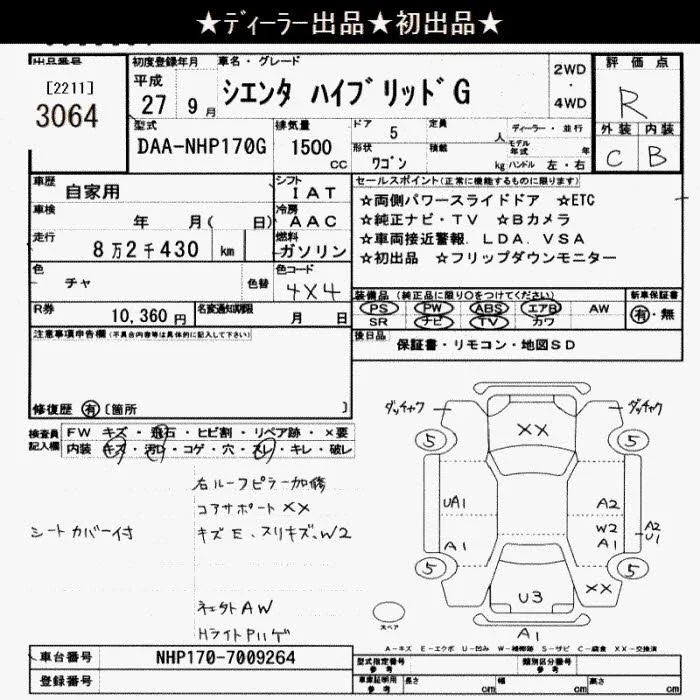 ★ディーラー出品★初出品★
出品番号
[2211]
3064
初度登録年月
平成
27 9月
車名・グレード
シエンタ ハイブリッドG
2WD
・
4WD
評価点
R
外装 内装
C B
型式
DAA-NHP170G
排気量
1500
cc
ドア
5
定員
人
形状
ワゴン
積載
kg
ディーラー・並行
モデル年式
年
ハンドル 左・右
車歴
自家用
シフト
IAT
車検
年 月( 日)
冷房
AAC
走行
8万2千430 km
燃料
ガソリン
色
チャ
色替
色コード
4X4
R券
10,360円
名変通知期限
月 日
セールスポイント(正常に機能するものに限ります)
☆両側パワースライドドア ☆ETC
☆純正ナビ・TV ☆Bカメラ
☆車両接近警報. LDA. VSA
☆初出品 ☆フリップダウンモニター
装備品(純正品に限り○をつけてください)
PS PW ABS エアB AW
SR ナビ TV カワ
新車保証書
有・無
後日品
保証書・リモコン・地図SD
注意事項申告欄(不具合内容等は具体的に記入して下さい)
修復歴 有 [箇所 ]
検査員記入欄
FW キズ・飛石・ヒビ割・リペア跡・×要
内装 キズ・汚レ・コゲ・穴・スレ・キレ・破レ
右ルーフピラー加修
コアサポートXX
シートカバー付
キズE、スリキズ、W2
社外AW
HライトPハゲ
ダッチャク
ダッチャク
XX
5
5
UA1
A2
W2
A1
A1
A2
U1
5
5
XX
U3
A1
スペア
A-キズ E-エクボ U-凹み W-補修跡 S-サビ C-腐食 XX-交換済
車台番号
NHP170-7009264
登録番号
型式指定番号
参考
類別区分番号
参考
車庫証明用
参考
長さ
cm
幅
cm
高さ
cm